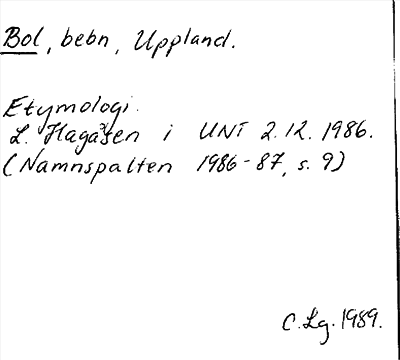 Bol, bebn, Uppland.
Etymologi.
L. Hagåsen i UNT 2.12.1986.
(Namnspalten 1986-87, s. 9)
C. Lg. 1989.